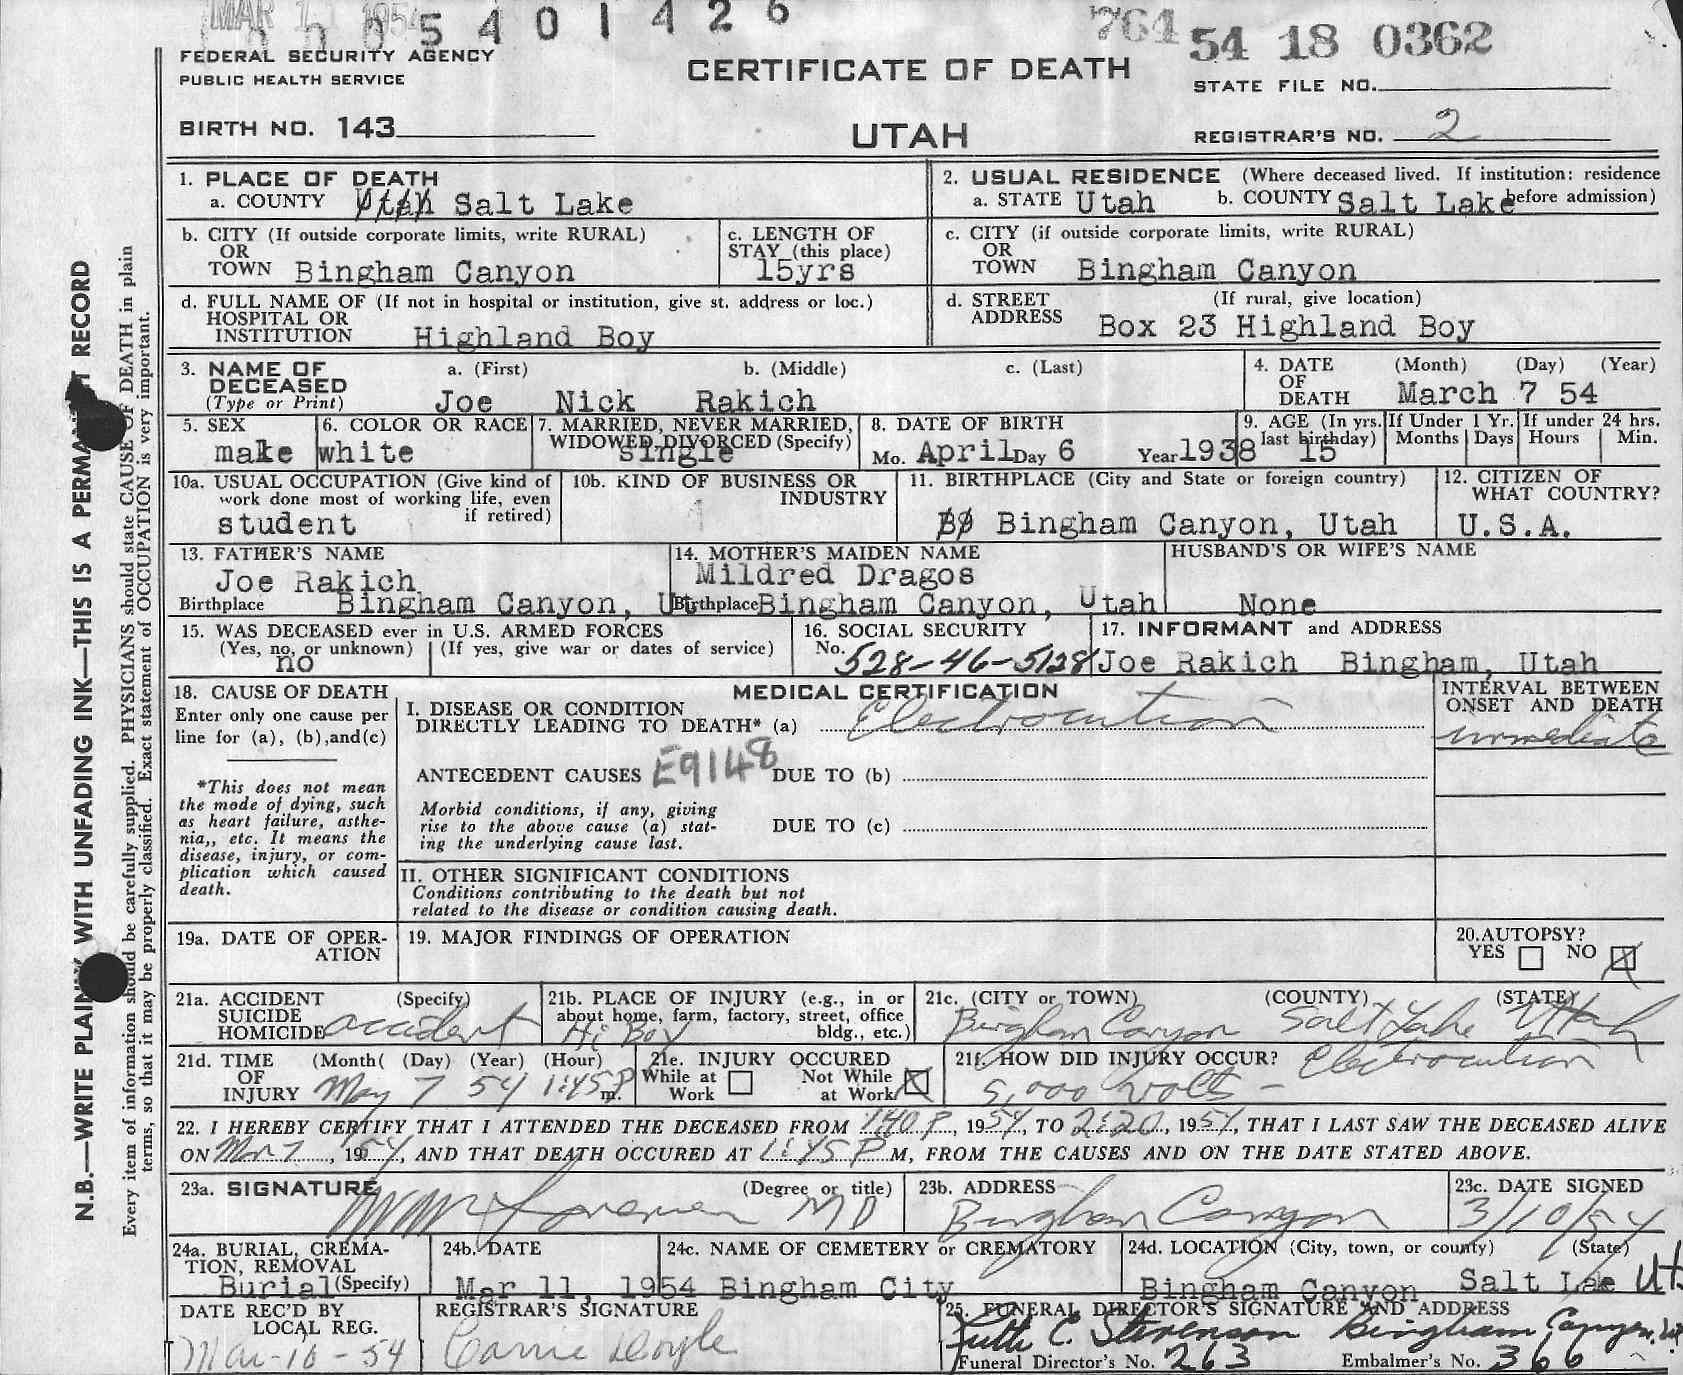 MAR 1 1954
5 4 0 1 4 2 6
764 54 18 0362
FEDERAL SECURITY AGENCY
PUBLIC HEALTH SERVICE
CERTIFICATE OF DEATH
STATE FILE NO.
BIRTH NO. 143
UTAH
REGISTRAR'S NO. 2
1. PLACE OF DEATH
a. COUNTY Utah Salt Lake
2. USUAL RESIDENCE (Where deceased lived. If institution: residence before admission)
a. STATE Utah b. COUNTY Salt Lake
b. CITY (If outside corporate limits, write RURAL)
OR
TOWN Bingham Canyon
c. LENGTH OF
STAY (this place)
15yrs
c. CITY (if outside corporate limits, write RURAL)
OR
TOWN Bingham Canyon
d. FULL NAME OF (If not in hospital or institution, give st. address or loc.)
HOSPITAL OR
INSTITUTION Highland Boy
d. STREET (If rural, give location)
ADDRESS Box 23 Highland Boy
3. NAME OF a. (First) b. (Middle) c. (Last)
DECEASED
(Type or Print) Joe Nick Rakich
4. DATE (Month) (Day) (Year)
OF
DEATH March 7 54
5. SEX
make
6. COLOR OR RACE
white
7. MARRIED, NEVER MARRIED,
WIDOWED, DIVORCED (Specify)
single
8. DATE OF BIRTH
Mo. April Day 6 Year 1938
9. AGE (In yrs.
last birthday)
15
If Under 1 Yr.
Months Days
If under 24 hrs.
Hours Min.
10a. USUAL OCCUPATION (Give kind of
work done most of working life, even
if retired)
student
10b. KIND OF BUSINESS OR
INDUSTRY
11. BIRTHPLACE (City and State or foreign country)
Bingham Canyon, Utah
12. CITIZEN OF
WHAT COUNTRY?
U.S.A.
13. FATHER'S NAME
Joe Rakich
Birthplace Bingham Canyon, Ut
14. MOTHER'S MAIDEN NAME
Mildred Dragos
Birthplace Bingham Canyon, Utah
HUSBAND'S OR WIFE'S NAME
None
15. WAS DECEASED ever in U.S. ARMED FORCES
(Yes, no, or unknown) (If yes, give war or dates of service)
no
16. SOCIAL SECURITY
No. 528-46-5128
17. INFORMANT and ADDRESS
Joe Rakich Bingham, Utah
18. CAUSE OF DEATH
Enter only one cause per
line for (a), (b),and(c)
*This does not mean
the mode of dying, such
as heart failure, asthe-
nia,, etc. It means the
disease, injury, or com-
plication which caused
death.
MEDICAL CERTIFICATION
I. DISEASE OR CONDITION
DIRECTLY LEADING TO DEATH* (a) Electrocution
INTERVAL BETWEEN
ONSET AND DEATH
immediate
ANTECEDENT CAUSES E9148 DUE TO (b)
Morbid conditions, if any, giving
rise to the above cause (a) stat-
ing the underlying cause last.
DUE TO (c)
II. OTHER SIGNIFICANT CONDITIONS
Conditions contributing to the death but not
related to the disease or condition causing death.
19a. DATE OF OPER-
ATION
19. MAJOR FINDINGS OF OPERATION
20.AUTOPSY?
YES NO X
21a. ACCIDENT (Specify)
SUICIDE
HOMICIDE accident
21b. PLACE OF INJURY (e.g., in or
about home, farm, factory, street, office
bldg., etc.)
Hi Boy
21c. (CITY or TOWN) (COUNTY) (STATE)
Bingham Canyon Salt Lake Utah
21d. TIME (Month( (Day) (Year) (Hour)
OF
INJURY May 7 54 1:45 P m.
21e. INJURY OCCURED
While at Work
Not While at Work X
21f. HOW DID INJURY OCCUR? Electrocution
5,000 volts -
22. I HEREBY CERTIFY THAT I ATTENDED THE DECEASED FROM 1:40 P, 1954, TO 2:20, 1954, THAT I LAST SAW THE DECEASED ALIVE
ON Mar 7, 1954, AND THAT DEATH OCCURED AT 1:45 P M, FROM THE CAUSES AND ON THE DATE STATED ABOVE.
23a. SIGNATURE (Degree or title)
MD
23b. ADDRESS
Bingham Canyon
23c. DATE SIGNED
3/10/54
24a. BURIAL, CREMA-
TION, REMOVAL
Burial (Specify)
24b. DATE
Mar 11, 1954
24c. NAME OF CEMETERY or CREMATORY
Bingham City
24d. LOCATION (City, town, or county) (State)
Bingham Canyon Salt Lae Ut.
DATE REC'D BY
LOCAL REG.
Mar-10-54
REGISTRAR'S SIGNATURE
Carrie Doyle
25. FUNERAL DIRECTOR'S SIGNATURE AND ADDRESS
C. Stevenson Bingham Canyon, Ut
Funeral Director's No. 263 Embalmer's No. 366
N.B.—WRITE PLAINLY WITH UNFADING INK—THIS IS A PERMANENT RECORD
Every item of information should be carefully supplied. PHYSICIANS should state CAUSE OF DEATH in plain
terms, so that it may be properly classified. Exact statement of OCCUPATION is very important.